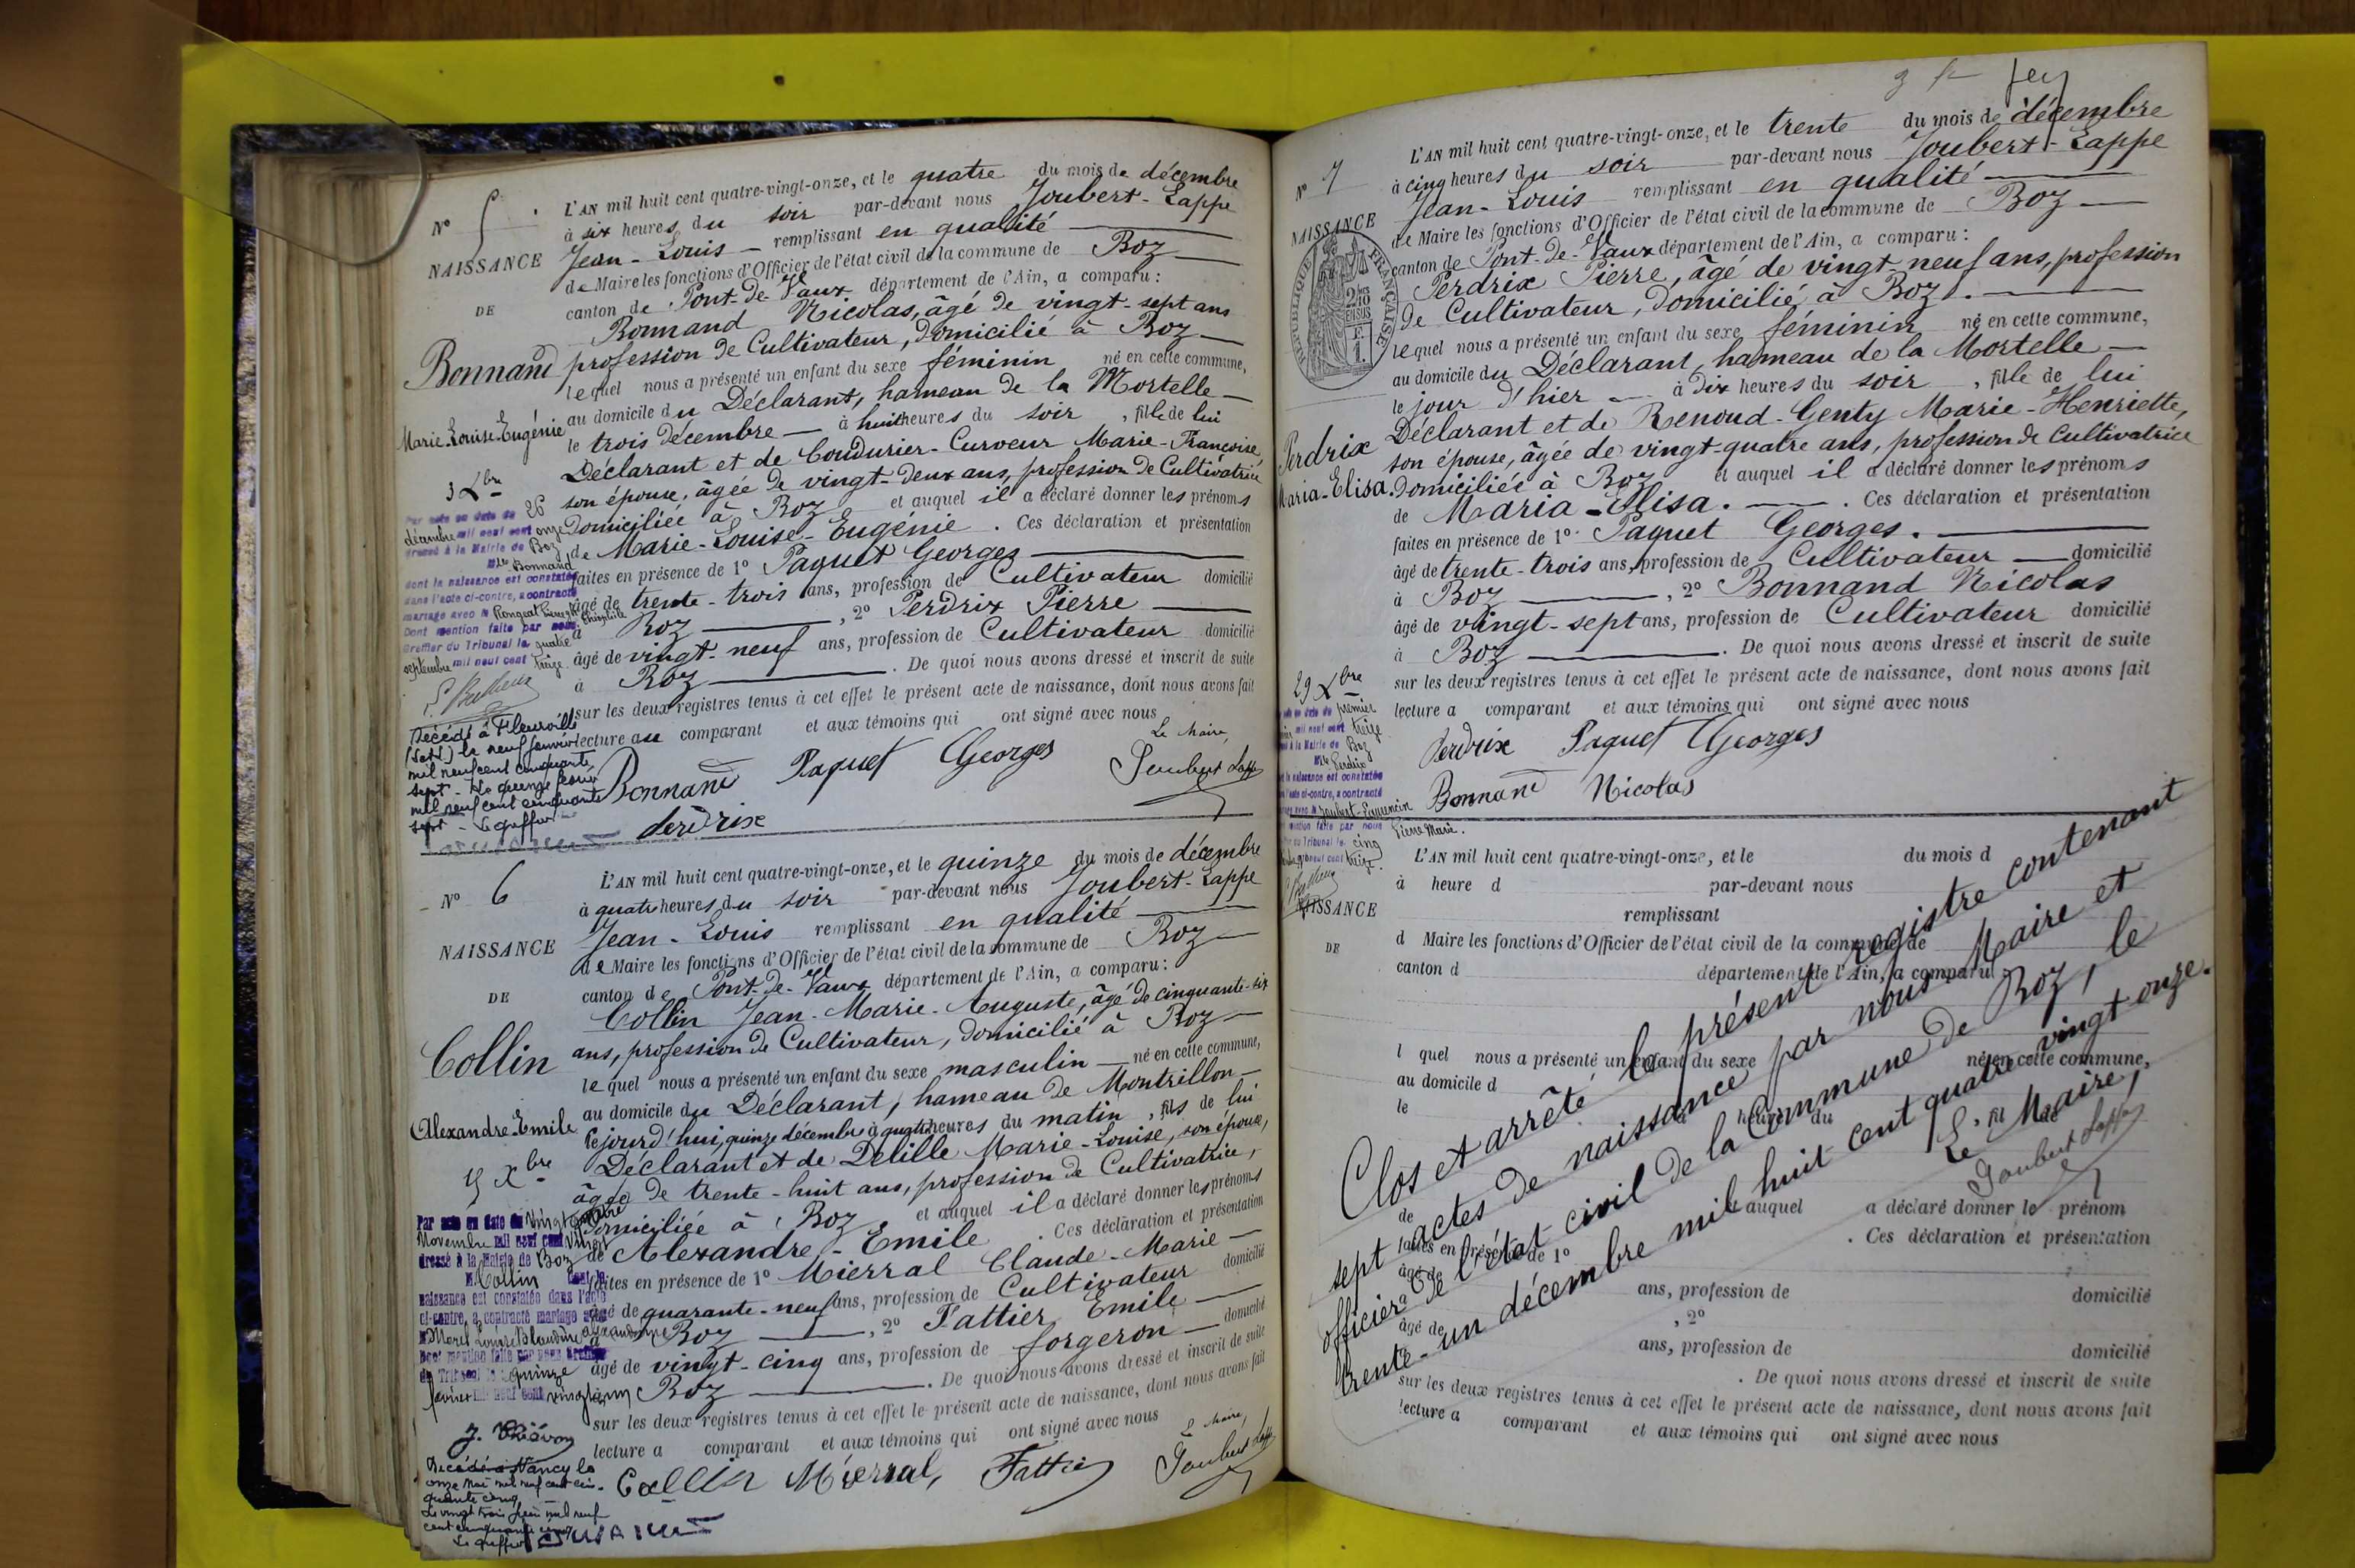 N° 5.
NAISSANCE
DE
Bonnand
Marie-Louise-Eugénie
3 Xbre
L'AN mil huit cent quatre-vingt-onze, et le quatre du mois de décembre
à six heures du soir par-devant nous Joubert-Lappe
Jean-Louis remplissant en qualité
de Maire les fonctions d'Officier de l'état civil de la commune de Boz
canton de Pont-de-Vaux département de l'Ain, a comparu :
Bonnand Nicolas, âgé de vingt-sept ans
profession de Cultivateur, domicilié à Boz
lequel nous a présenté un enfant du sexe féminin né en cette commune,
au domicile du Déclarant, hameau de la Mortelle
le trois décembre à huit heures du soir, fille de lui
Déclarant et de Coudurier-Curveur Marie-Françoise,
son épouse, âgée de vingt-deux ans, profession de Cultivatrice
domiciliée à Boz et auquel il a déclaré donner les prénoms
de Marie-Louise-Eugénie. Ces déclaration et présentation
faites en présence de 1° Paquet Georges
âgé de trente-trois ans, profession de Cultivateur domicilié
à Boz, 2° Perdrix Pierre
âgé de vingt-neuf ans, profession de Cultivateur domicilié
à Boz. De quoi nous avons dressé et inscrit de suite
sur les deux registres tenus à cet effet le présent acte de naissance, dont nous avons fait
lecture au comparant et aux témoins qui ont signé avec nous
Le Maire,
Bonnand Paquet Georges Joubert Lappe
Perdrix
Par acte en date du 26
décembre mil neuf cent onze
dressé à la Mairie de Boz
Mlle Bonnand
dont la naissance est constatée
dans l'acte ci-contre, a contracté
mariage avec M
Dont mention faite par nous
Greffier du Tribunal le quatre
septembre mil neuf cent treize
Décédée à Fleurville
(S et L) le neuf janvier
mil neuf cent cinquante
sept - Le quinze
mil neuf cent cinquante
sept - Le greffier
N° 6
NAISSANCE
DE
Collin
Alexandre-Emile
15 Xbre
L'AN mil huit cent quatre-vingt-onze, et le quinze du mois de décembre
à quatre heures du soir par-devant nous Joubert-Lappe
Jean-Louis remplissant en qualité
de Maire les fonctions d'Officier de l'état civil de la commune de Boz
canton de Pont-de-Vaux département de l'Ain, a comparu :
Collin Jean-Marie-Auguste, âgé de cinquante-six
ans, profession de Cultivateur, domicilié à Boz
lequel nous a présenté un enfant du sexe masculin né en cette commune,
au domicile du Déclarant, hameau de Montrillon
le jourd'hui, quinze décembre à quatre heures du matin, fils de lui
Déclarant et de Delille Marie-Louise, son épouse,
âgée de trente-huit ans, profession de Cultivatrice,
domiciliée à Boz et auquel il a déclaré donner les prénoms
de Alexandre-Emile. Ces déclaration et présentation
faites en présence de 1° Mierral Claude-Marie
âgé de quarante-neuf ans, profession de Cultivateur domicilié
à Boz, 2° Fattier Emile
âgé de vingt-cinq ans, profession de forgeron domicilié
à Boz. De quoi nous avons dressé et inscrit de suite
sur les deux registres tenus à cet effet le présent acte de naissance, dont nous avons fait
lecture a comparant et aux témoins qui ont signé avec nous
Maire,
Collin Mierral, Fattier Joubert Lappe
Par acte en date du vingt quatre
Novembre mil neuf cent vingt
dressé à la Mairie de Boz
M. Collin dont la
naissance est constatée dans l'acte
ci-contre, a contracté mariage avec
Morel Louise Blandine Alexandrine
Dont mention faite par nous Greffier
du Tribunal le quinze
février mil neuf cent vingt un
Décédé à Nancy le
onze Mai mil neuf cent cin-
quante cinq
Le vingt trois Juin mil neuf
cent cinquante cinq
Le greffier
N° 7
NAISSANCE
RÉPUBLIQUE FRANÇAISE
2/10
EN SUS
F. 1.
Perdrix
Maria-Elisa.
29 Xbre
L'AN mil huit cent quatre-vingt-onze, et le trente du mois de décembre
à cinq heures du soir par-devant nous Joubert-Lappe
Jean-Louis remplissant en qualité
de Maire les fonctions d'Officier de l'état civil de la commune de Boz
canton de Pont-de-Vaux département de l'Ain, a comparu :
Perdrix Pierre, âgé de vingt-neuf ans, profession
de Cultivateur, domicilié à Boz.
lequel nous a présenté un enfant du sexe féminin né en cette commune,
au domicile du Déclarant, hameau de la Mortelle
le jour d'hier à dix heures du soir, fille de lui
Déclarant et de Renoud-Genty Marie-Henriette,
son épouse, âgée de vingt-quatre ans, profession de Cultivatrice
domiciliée à Boz et auquel il a déclaré donner les prénoms
de Maria-Elisa. Ces déclaration et présentation
faites en présence de 1° Paquet Georges.
âgé de trente-trois ans, profession de Cultivateur domicilié
à Boz, 2° Bonnand Nicolas
âgé de vingt-sept ans, profession de Cultivateur domicilié
à Boz. De quoi nous avons dressé et inscrit de suite
sur les deux registres tenus à cet effet le présent acte de naissance, dont nous avons fait
lecture a comparant et aux témoins qui ont signé avec nous
Perdrix Paquet Georges
Bonnand Nicolas
premier
mil neuf cent treize
à la Mairie de Boz
Mlle Perdrix
naissance est constatée
l'acte ci-contre, a contracté
Pierre Marie.
mention faite par nous
du Tribunal le cinq
neuf cent treize.
NAISSANCE
DE
L'AN mil huit cent quatre-vingt-onze, et le du mois d
à heure d par-devant nous
remplissant
d Maire les fonctions d'Officier de l'état civil de la commune de
canton d département de l'Ain, a comparu :
l quel nous a présenté un enfant du sexe né en cette commune,
au domicile d
le à heures du , fil de
de auquel a déclaré donner le prénom
. Ces déclaration et présentation
faites en présence de 1°
âgé de ans, profession de domicilié
à , 2°
âgé de ans, profession de domicilié
à . De quoi nous avons dressé et inscrit de suite
sur les deux registres tenus à cet effet le présent acte de naissance, dont nous avons fait
lecture a comparant et aux témoins qui ont signé avec nous
Clos et arrêté le présent registre contenant
sept actes de naissance par nous Maire et
officier de l'état civil de la Commune de Boz, le
trente-un décembre mil huit cent quatre vingt-onze.
Le Maire,
Joubert Lappe